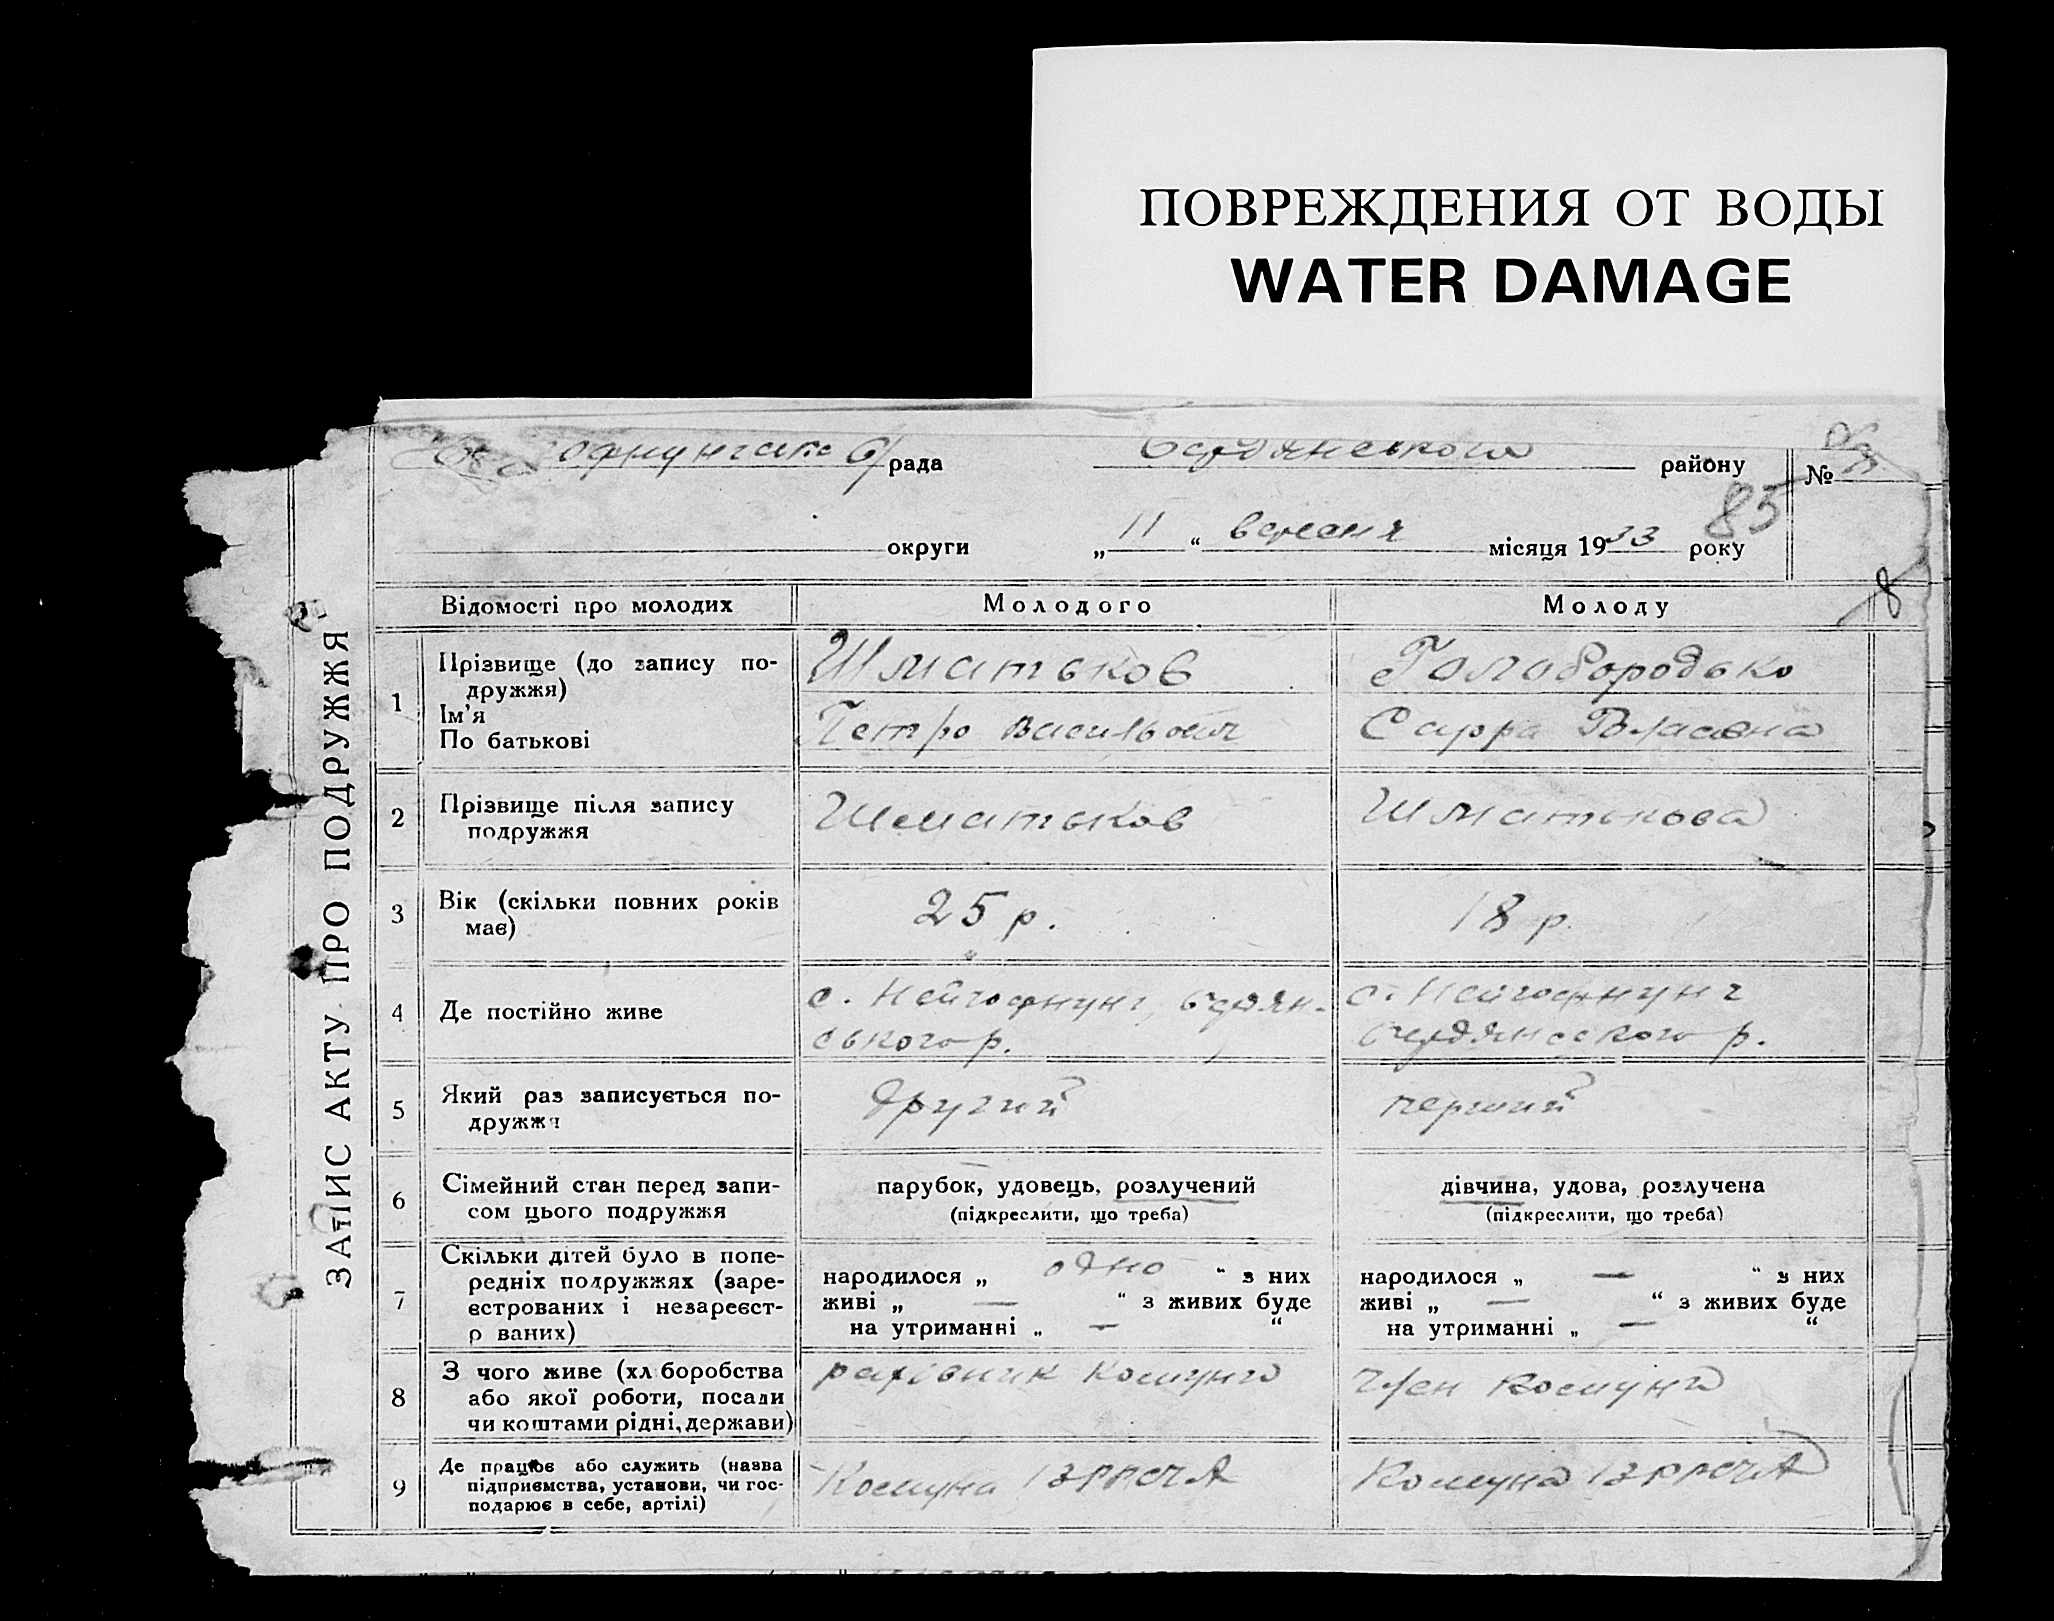 ПОВРЕЖДЕНИЯ ОТ ВОДЫ
WATER DAMAGE
рада Бердянського району №
85
округи „ 11 “ вересня місяця 1933 року
8
ЗАПИС АКТУ ПРО ПОДРУЖЖЯ
Відомості про молодих Молодого Молоду
1 Прізвище (до запису по-
дружжя)
Ім'я
По батькові
Шматьков
Петро Васильович
Голобородько
Сарра Власовна
2 Прізвище після запису
подружжя
Шматьков
Шматькова
3 Вік (скільки повних років
має)
25 р.
18 р.
4 Де постійно живе
с. Нейгофнунг, Бердян-
ського р.
с. Нейгофнунг
Бердянського р.
5 Який раз записується по-
дружжя
другий
перший
6 Сімейний стан перед запи-
сом цього подружжя
парубок, удовець, розлучений
(підкреслити, що треба)
дівчина, удова, розлучена
(підкреслити, що треба)
7 Скільки дітей було в попе-
редніх подружжях (заре-
єстрованих і незареєст-
р ваних)
народилося „ одно “ з них
живі „ — “ з живих буде
на утриманні „ — “
народилося „ — “ з них
живі „ — “ з живих буде
на утриманні „ — “
8 З чого живе (хл боробства
або якої роботи, посади
чи коштами рідні, держави)
рахівник
член
9 Де працює або служить (назва
підприємства, установи, чи гос-
подарює в себе, артілі)
Комуна
Комуна